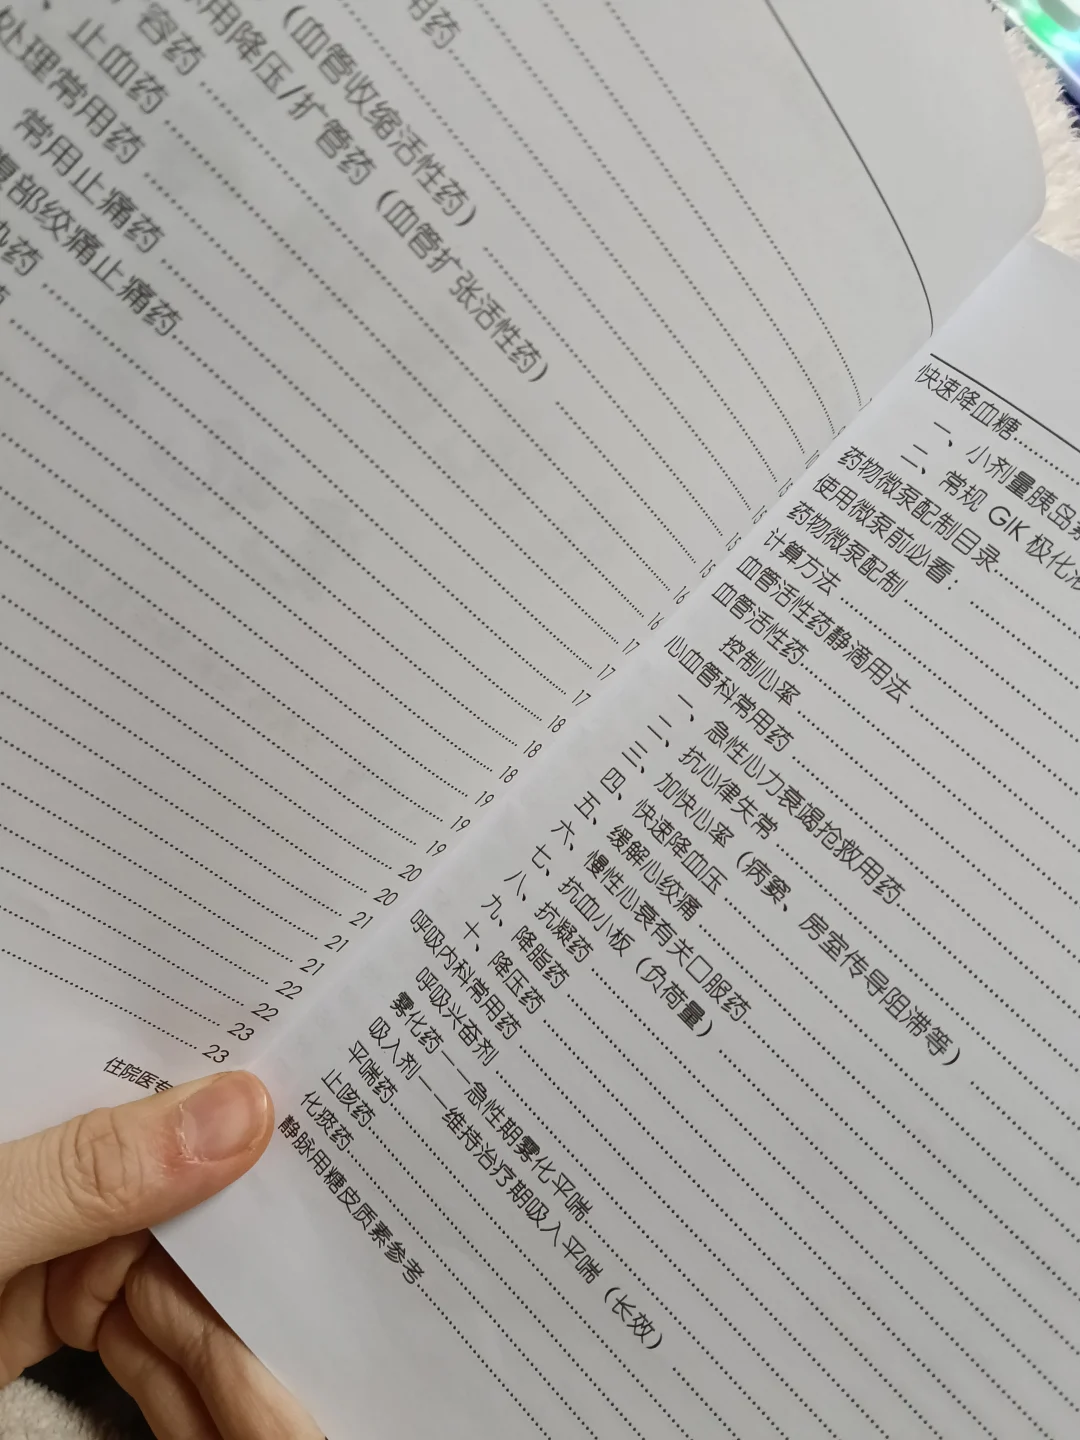 用药
（血管收缩活性药）
用降压/扩管药（血管扩张活性药）
扩容药
止血药
处理常用药
常用止痛药
腹部绞痛止痛药
药
15
15
15
16
16
17
17
17
18
18
18
19
19
19
20
20
21
21
21
22
22
23
23
住院医
快速降血糖
一、小剂量胰岛素
二、常规 GIK 极化液
药物微泵配制目录
使用微泵前必看：
药物微泵配制
计算方法
血管活性药静滴用法
血管活性药
控制心率
心血管科常用药
一、急性心力衰竭抢救用药
二、抗心律失常
三、加快心率（病窦、房室传导阻滞等）
四、快速降血压
五、缓解心绞痛
六、慢性心衰有关口服药
七、抗血小板（负荷量）
八、抗凝药
九、降脂药
十、降压药
呼吸内科常用药
呼吸兴奋剂
雾化药——急性期雾化平喘
吸入剂——维持治疗期吸入平喘（长效）
平喘药
止咳药
化痰药
静脉用糖皮质素参考